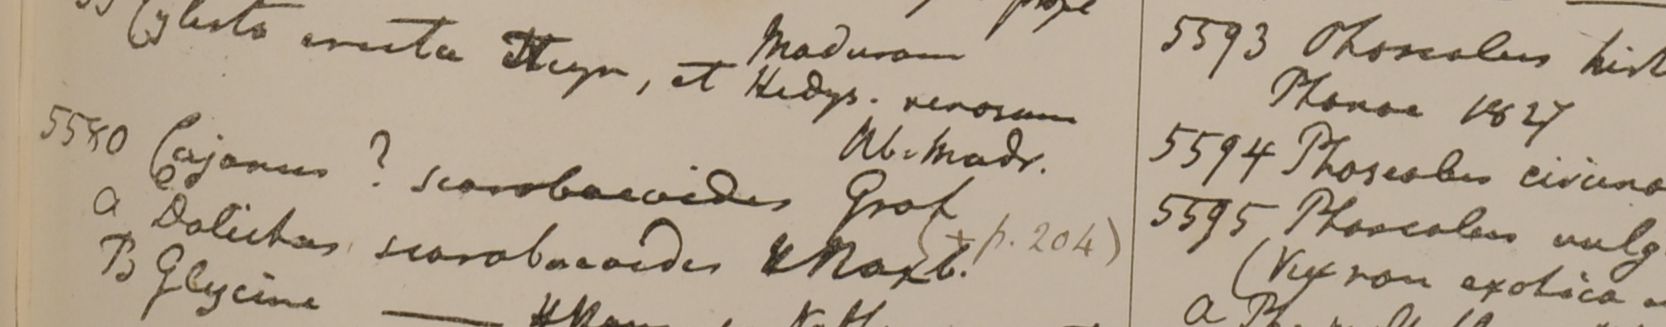 Cylista erecta Heyn, et Maduram
Hedys. venosum
Ab. Madr.
5580 Cajanus ? scarabaeoides Grah
(+ p. 204)
a Dolichos scarabaeoides HRoxb.
B Glycine ——
5593 Phaseolus hirt
1827
5594 Phaseolus circina
5595 Phaseolus vulg
(Vix non exotica
a